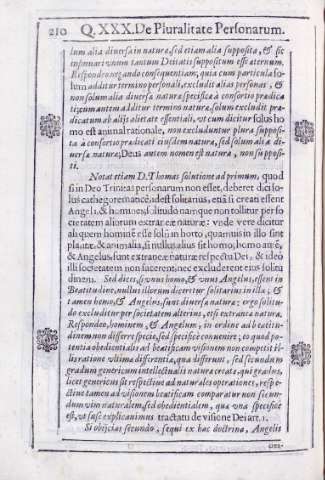 210 Q. XXX. De Pluralitate Personarum.
lum alia diversa in natura, sed etiam alia supposita, & sic
insinuari unum tantum Deitatis suppositum esse æternum.
Respondeo negando consequentiam, quia cum particula so-
lum additur termino personali, excludit alias personas, &
non solum alia diversa natura specifica à consortio prædica
ti; cum autem additur termino naturæ, solum excludit præ-
dicatum ab alijs alietate essentiali, ut cum dicitur solus ho
mo est animal rationale, non excluduntur plura supposi-
ta à consortio prædicati eiusdem natura, sed solum alia di-
versa natura; Deus autem nomen est natura, non supposi-
ti.
Notat etiam D. Thomas solutione ad primum, quod
si in Deo Trinitas personarum non esset, deberet dici so-
lus cathegorematicè, idest solitarius, etiã si creati essent
Angeli, & homines, solitudo namque non tollitur per so
cietatem aliorum extraneæ naturæ: unde vere dicitur
aliquem hominē esse solũ in horto, quamvis in illo sint
plantæ, & animalia, si nullus alius sit homo, homo autē,
& Angelus, sunt extraneæ naturæ respectu Dei, & ideò
illi societatem non facerent, nec excluderent eius solitu
dinem. Sed dices, si unus homo, & unus Angelus, essent in
Beatitudine, nullus illorum diceretur solitarius in illa, &
tamen homo, & Angelus, sunt diversa natura: ergo solitu-
do excluditur per societatem alterius, etsi extranea natura.
Respondeo, hominem, & Angelum, in ordine ad beatitu-
dinem non differre specie, sed specifice convenire, eo quod po-
tentia obedientialis ad beatificam visionem non competit il-
lis ratione ultima differentia, qua differunt, sed secundum
gradum genericum intellectualis natura creata, qui gradus,
licet genericus sit respective ad naturales operationes, respe-
ctive tamen ad visionem beatificam comparatur non secun-
dum vim naturalem, sed obedientialem, qua una specifice
est, ut fuse explicavimus tractatu de visione Dei art. 1.
Si obijcias secundo, sequi ex hac doctrina, Angelis